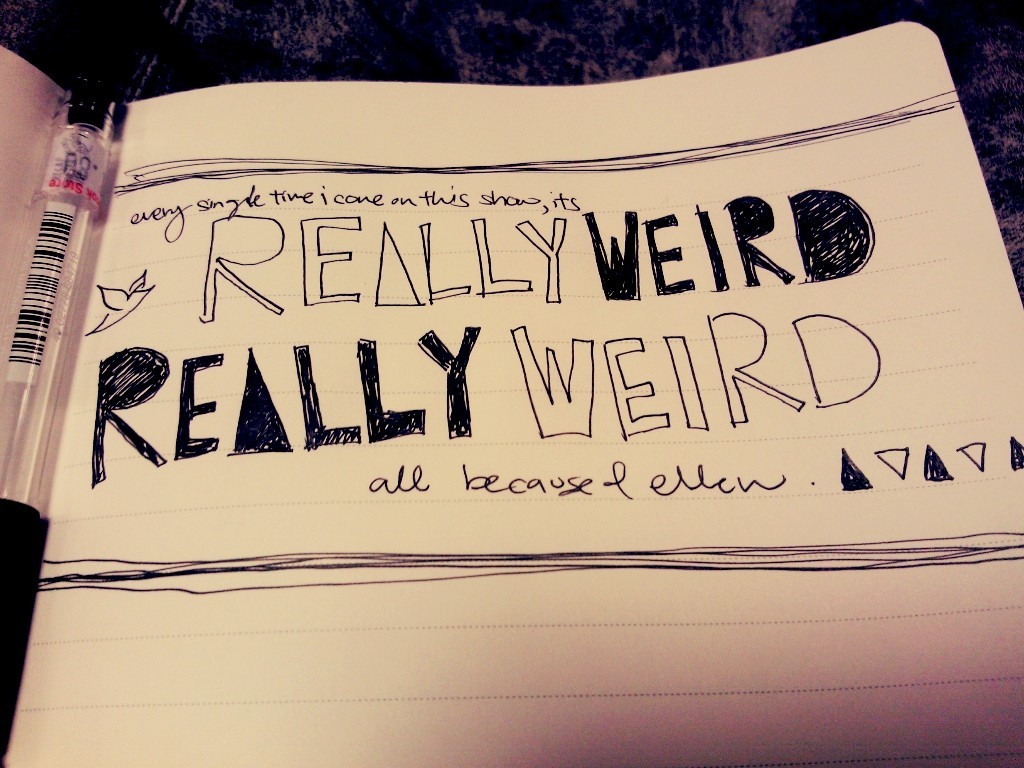 every single time i come on this show, its
REALLY WEIRD
REALLY WEIRD
all because of ellen.